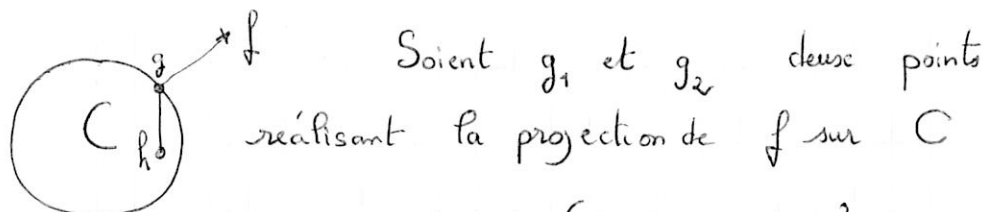 g f Soient g₁ et g₂ deux points
C h réalisant la projection de f sur C